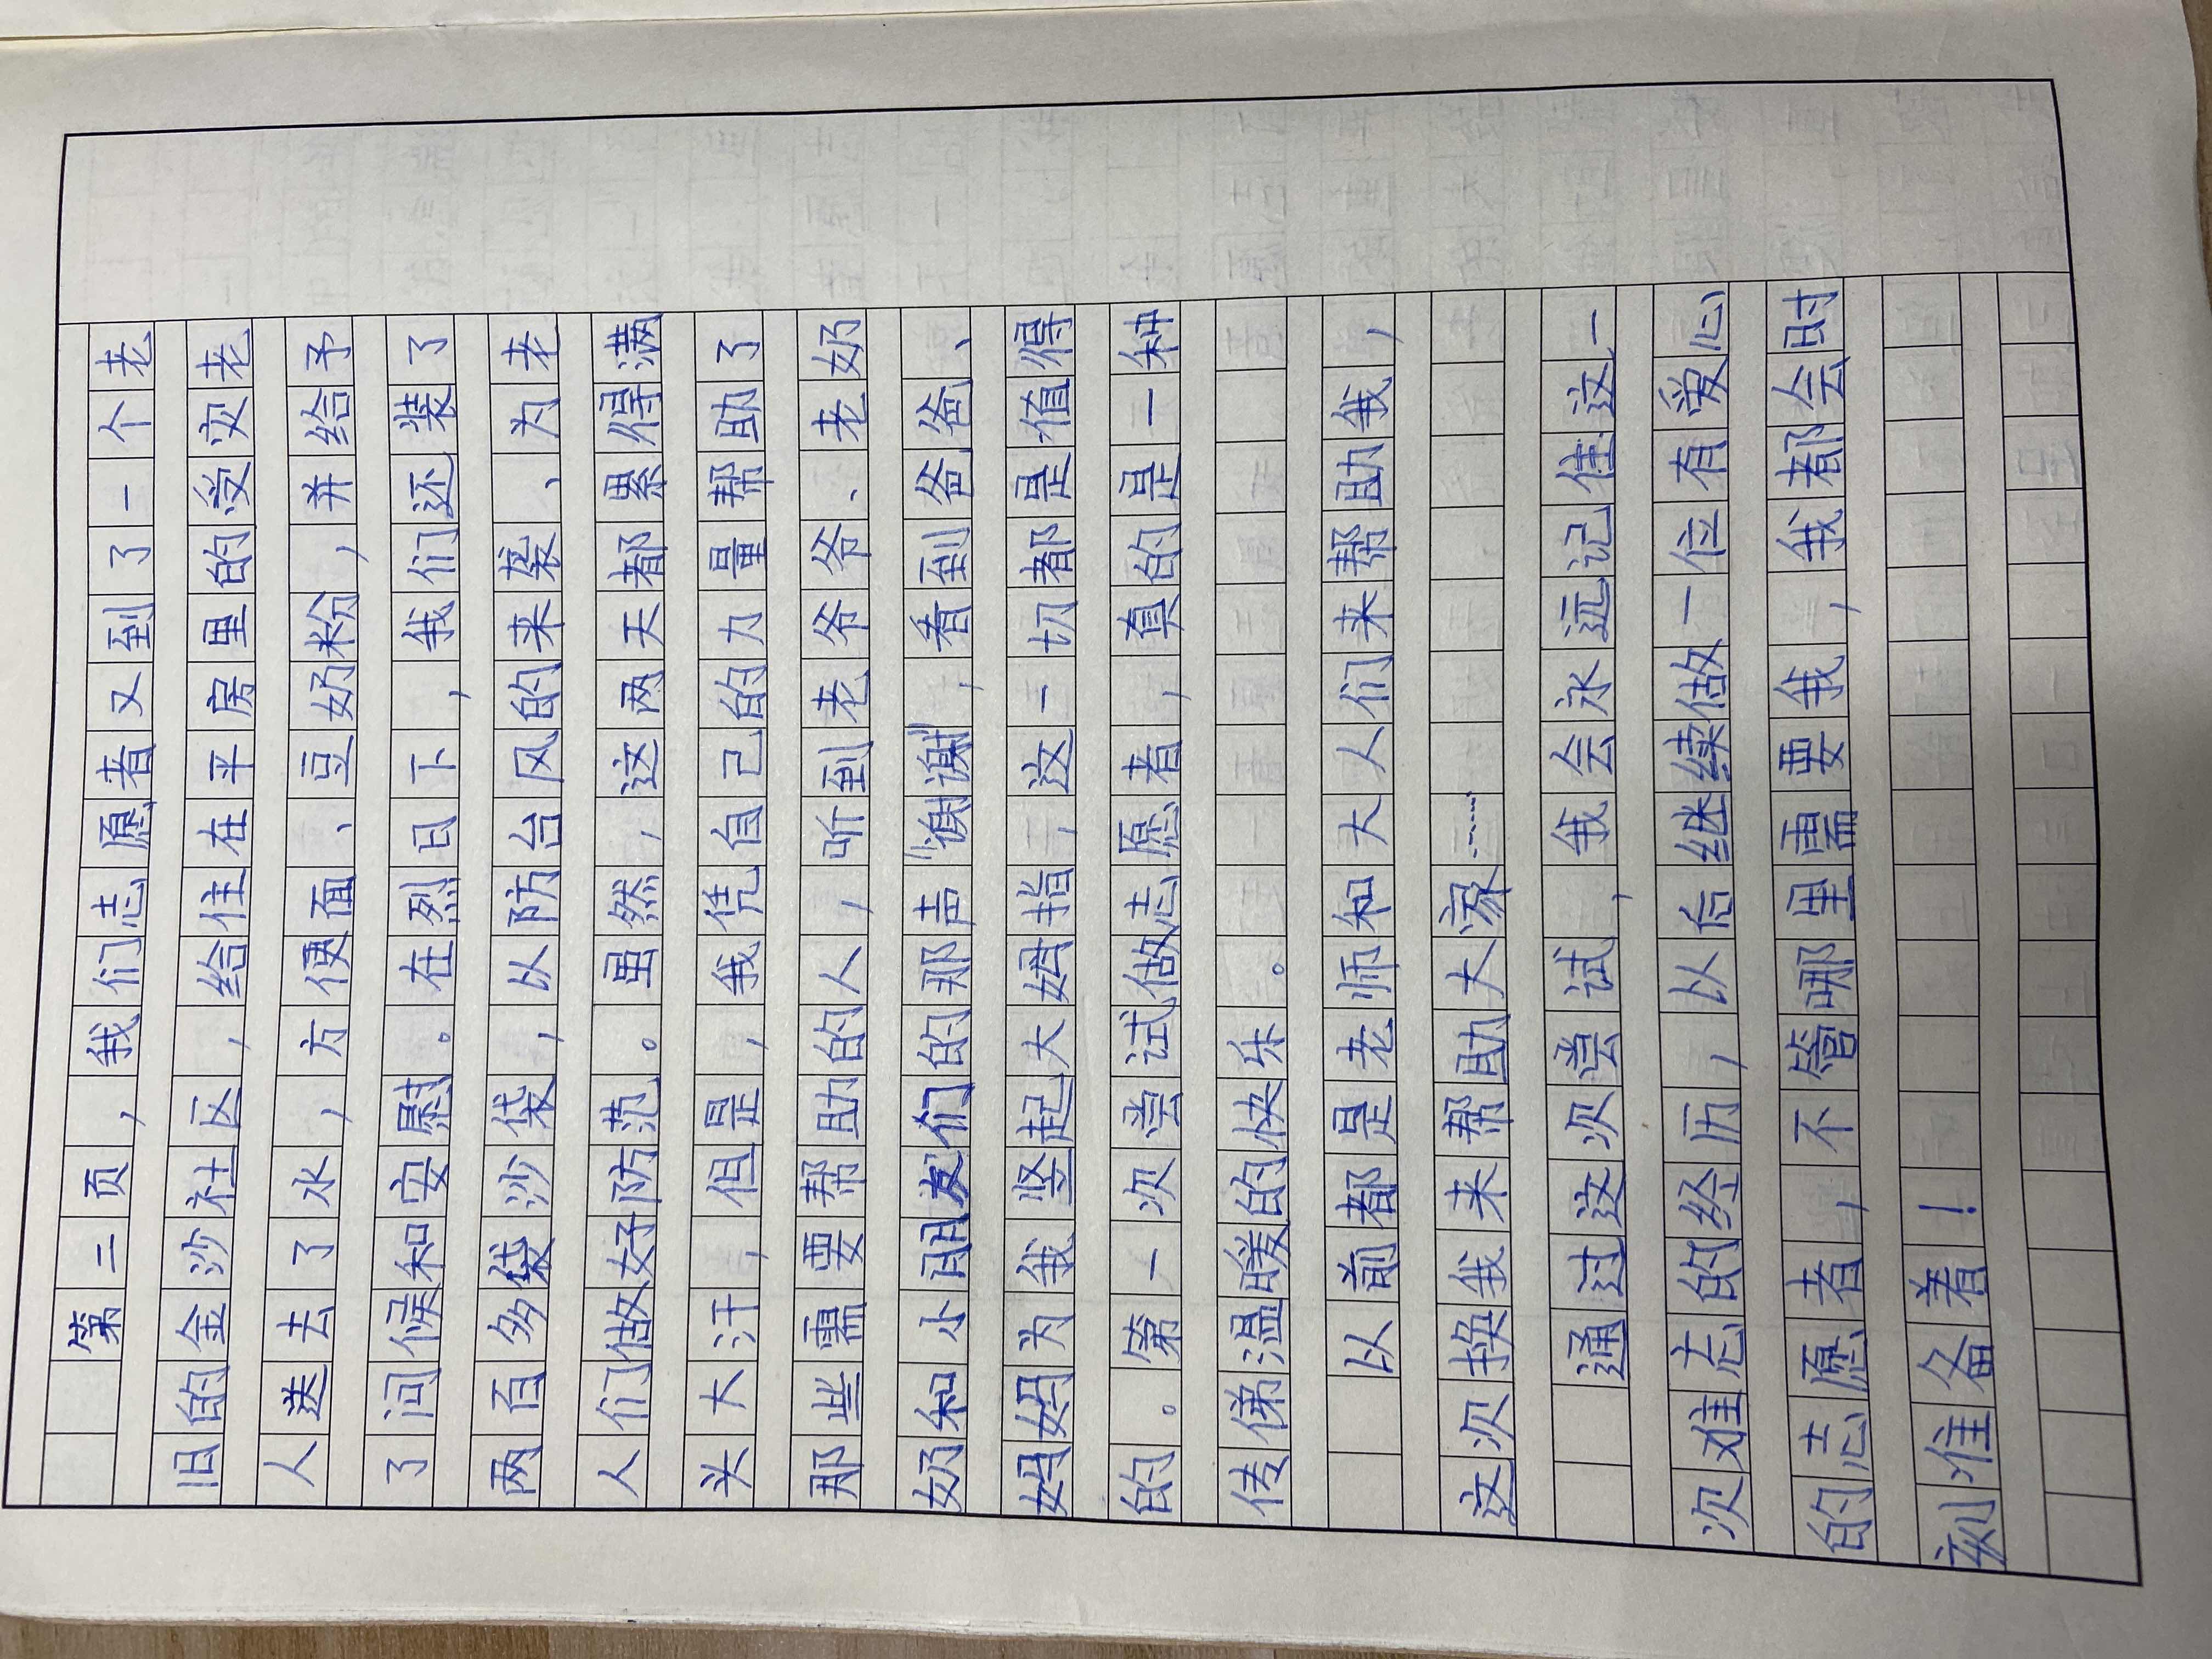 第二页，我们志愿者又到了一个老
旧的金沙社区，给住在平房里的受灾老
人送去了水，方便面、豆奶粉，并给予
了问候和安慰。在烈日下，我们还装了
两百多袋沙袋，以防台风的来袭、为老
人们做好防范。虽然，这两天都累得满
头大汗，但是，我凭自己的力量帮助了
那些需要帮助的人，听到老爷爷、老奶
奶和小朋友们的那声“谢谢”，看到爸爸、
妈妈为我竖起大姆指，这一切都是值得
的。第一次尝试做志愿者，真的是一种
传俤温暖的快乐。
以前都是老师和大人们来帮助我，
这次换我来帮助大家……
通过这次尝试，我会永远记住这一
次难忘的经历，以后继续做一位有爱心
的志愿者，不管哪里需要我，我都会时
刻准备着！